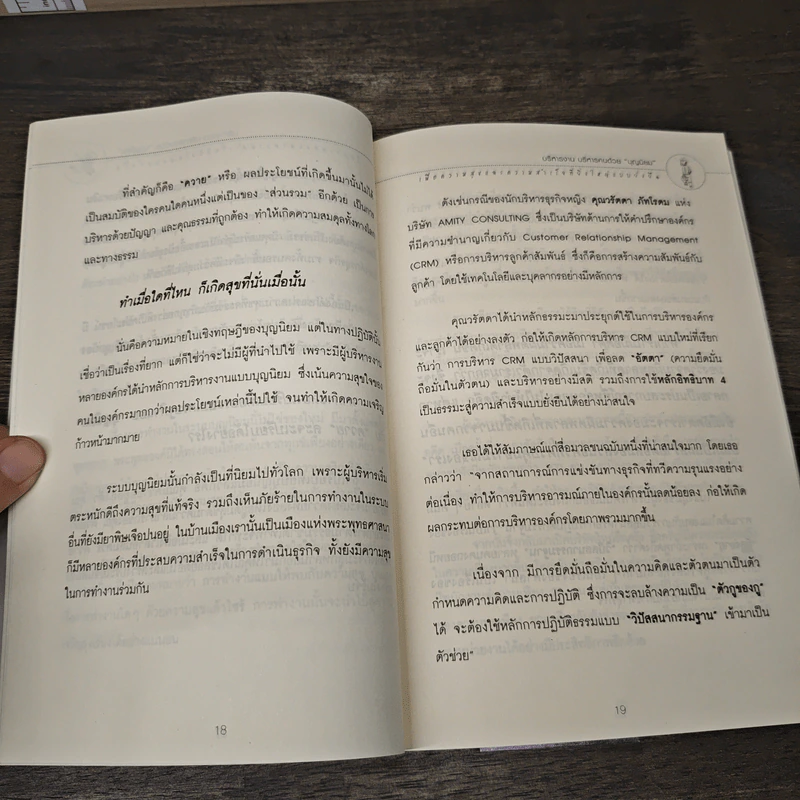 ที่สำคัญก็คือ "ควาย" หรือ ผลประโยชน์ที่เกิดขึ้นมานั้นไม่ได้
เป็นสมบัติของใครคนใดคนหนึ่งแต่เป็นของ "ส่วนรวม" อีกด้วย เป็นการ
บริหารด้วยปัญญา และคุณธรรมที่ถูกต้อง ทำให้เกิดความสมดุลทั้งทางโลก
และทางธรรม
ทำเมื่อใดที่ไหน ก็เกิดสุขที่นั่นเมื่อนั้น
นั่นคือความหมายในเชิงทฤษฎีของบุญนิยม แต่ในทางปฏิบัตินั้น
เชื่อว่าเป็นเรื่องที่ยาก แต่ก็ใช่ว่าจะไม่มีผู้ที่นำไปใช้ เพราะมีผู้บริหารงาน
หลายองค์กรได้นำหลักการบริหารงานแบบบุญนิยม ซึ่งเน้นความสุขใจของ
คนในองค์กรมากกว่าผลประโยชน์เหล่านี้ไปใช้ จนทำให้เกิดความเจริญ
ก้าวหน้ามากมาย
ระบบบุญนิยมนั้นกำลังเป็นที่นิยมไปทั่วโลก เพราะผู้บริหารเริ่ม
ตระหนักดีถึงความสุขที่แท้จริง รวมถึงเห็นภัยร้ายในการทำงานในระบบ
อื่นที่ยังมียาพิษเจือปนอยู่ ในบ้านเมืองเรานั้นเป็นเมืองแห่งพระพุทธศาสนา
ก็มีหลายองค์กรที่ประสบความสำเร็จในการดำเนินธุรกิจ ทั้งยังมีความสุข
ในการทำงานร่วมกัน
18
บริหารงาน บริหารคนด้วย "บุญนิยม"
ดังเช่นกรณีของนักบริหารธุรกิจหญิง คุณวรัตดา ภัทโรดม แห่ง
บริษัท AMITY CONSULTING ซึ่งเป็นบริษัทด้านการให้คำปรึกษาองค์กร
ที่มีความชำนาญเกี่ยวกับ Customer Relationship Management
(CRM) หรือการบริหารลูกค้าสัมพันธ์ ซึ่งก็คือการสร้างความสัมพันธ์กับ
ลูกค้า โดยใช้เทคโนโลยีและบุคลากรอย่างมีหลักการ
คุณวรัตดาได้นำหลักธรรมะมาประยุกต์ใช้ในการบริหารองค์กร
และลูกค้าได้อย่างลงตัว ก่อให้เกิดหลักการบริหาร CRM แบบใหม่ที่เรียก
กันว่า การบริหาร CRM แบบวิปัสสนา เพื่อลด "อัตตา" (ความยึดมั่น
ถือมั่นในตัวตน) และบริหารอย่างมีสติ รวมถึงการใช้หลักอิทธิบาท 4
เป็นธรรมะสู่ความสำเร็จแบบยั่งยืนได้อย่างน่าสนใจ
เธอได้ให้สัมภาษณ์แก่สื่อมวลชนฉบับหนึ่งที่น่าสนใจมาก โดยเธอ
กล่าวว่า "จากสถานการณ์การแข่งขันทางธุรกิจที่ทวีความรุนแรงอย่าง
ต่อเนื่อง ทำให้การบริหารอารมณ์ภายในองค์กรนั้นลดน้อยลง ก่อให้เกิด
ผลกระทบต่อการบริหารองค์กรโดยภาพรวมมากขึ้น
เนื่องจาก มีการยึดมั่นถือมั่นในความคิดและตัวตนมาเป็นตัว
กำหนดความคิดและการปฏิบัติ ซึ่งการจะลบล้างความเป็น "ตัวกูของกู"
ได้ จะต้องใช้หลักการปฏิบัติธรรมแบบ "วิปัสสนากรรมฐาน" เข้ามาเป็น
ตัวช่วย"
19